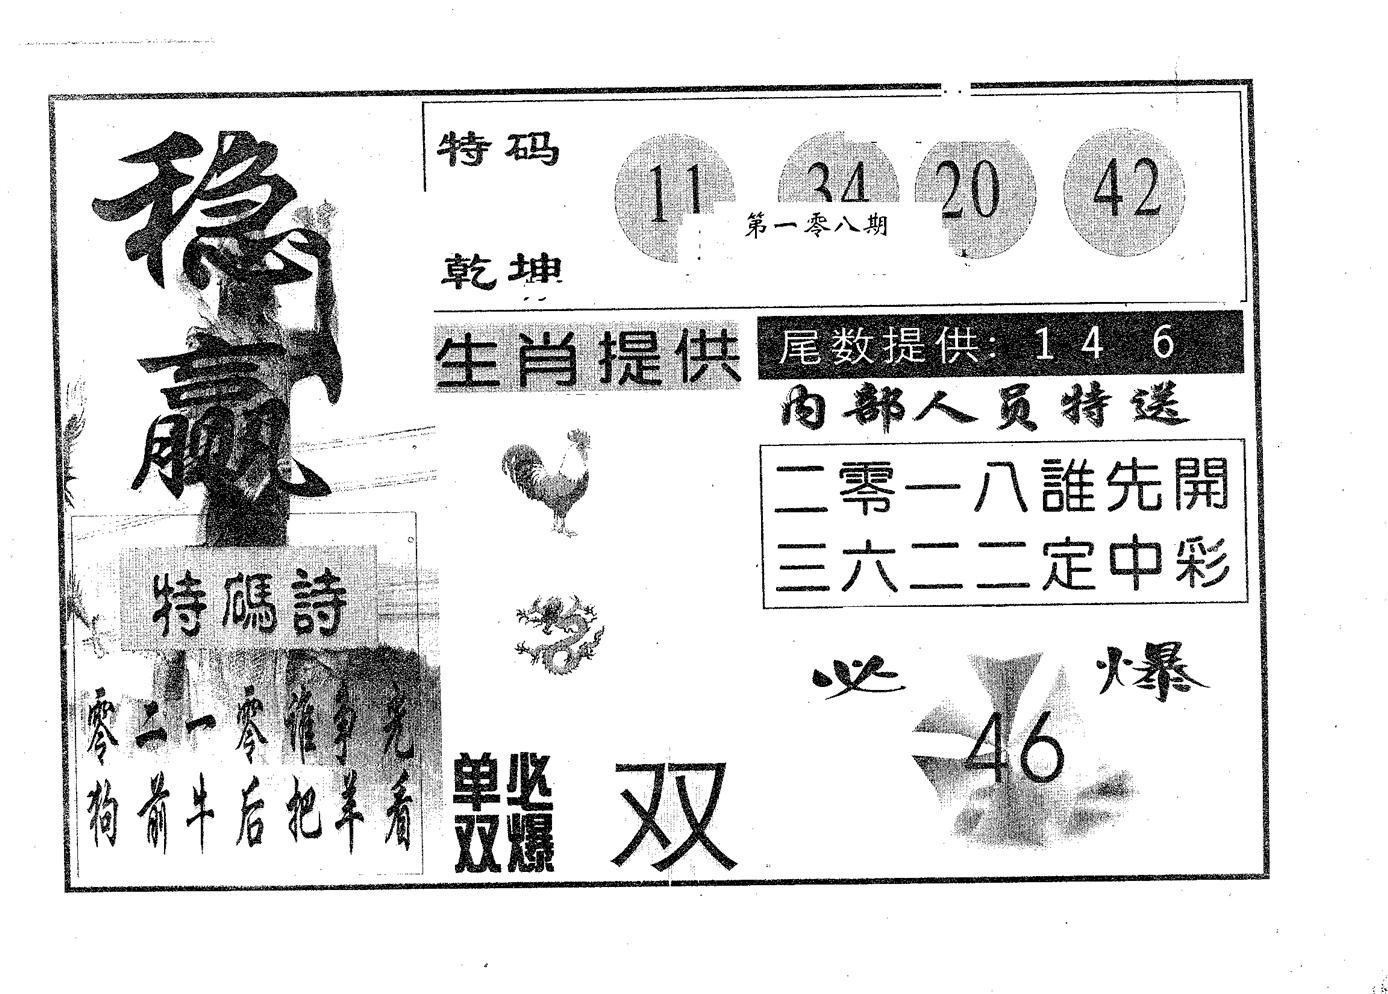 稳赢
特码
乾坤
11 34 20 42
第一零八期
生肖提供
尾数提供: 1 4 6
内部人员特送
二零一八誰先開
三六二二定中彩
特碼詩
零二一零谁争光
狗前牛后把羊看
必爆
46
单双
必爆
双